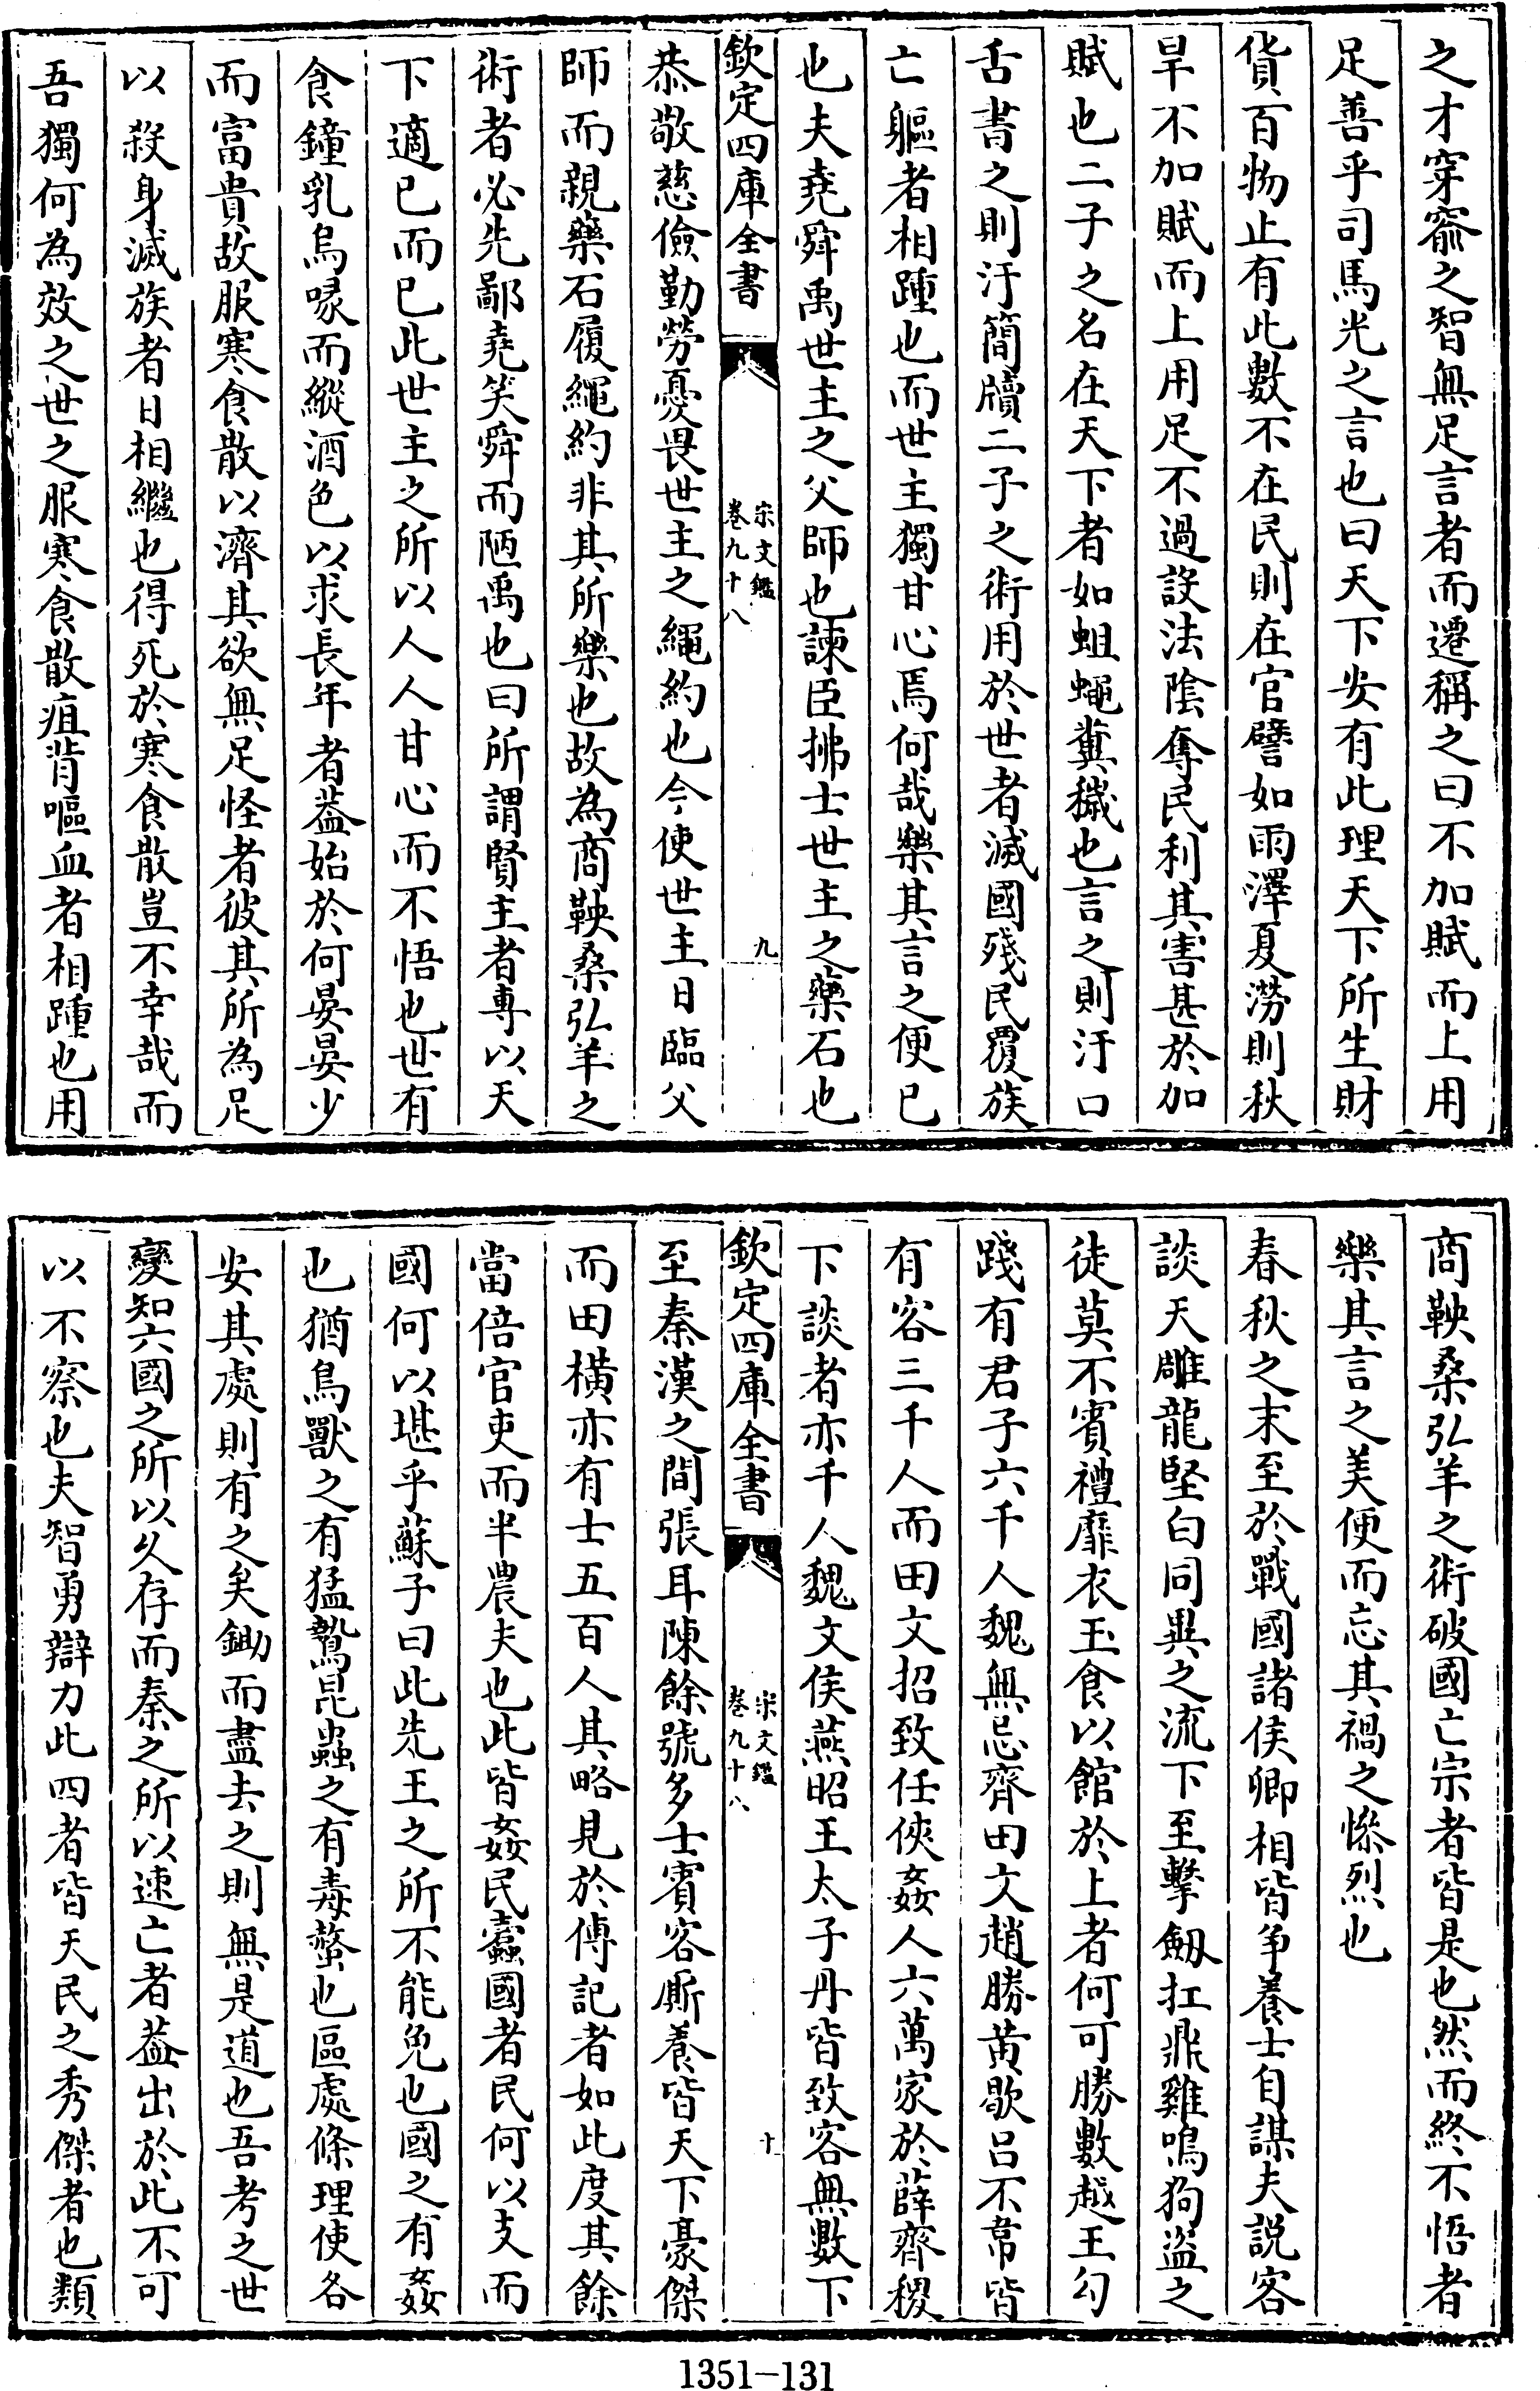 之才穿窬之智無足言者而遷稱之曰不加賦而上用
足善乎司馬光之言也曰天下安有此理天下所生財
貨百物止有此數不在民則在官譬如雨澤夏澇則秋
旱不加賦而上用足不過設法陰奪民利其害甚於加
賦也二子之名在天下者如蛆蠅糞穢也言之則汙口
舌書之則汙簡牘二子之術用於世者滅國殘民覆族
亡軀者相踵也而世主獨甘心焉何哉樂其言之便已
也夫堯舜禹世主之父師也諫臣拂士世主之藥石也
欽定四庫全書
宋文鑑
卷九十八
九
恭敬慈儉勤勞憂畏世主之繩約也今使世主日臨父
師而親藥石履繩約非其所樂也故為商鞅桑弘羊之
術者必先鄙堯笑舜而陋禹也曰所謂賢主者專以天
下適已而已此世主之所以人人甘心而不悟也世有
食鐘乳烏喙而縱酒色以求長年者葢始於何晏晏少
而富貴故服寒食散以濟其欲無足怪者彼其所為足
以殺身滅族者日相繼也得死於寒食散豈不幸哉而
吾獨何為效之世之服寒食散疽背嘔血者相踵也用
商鞅桑弘羊之術破國亡宗者皆是也然而終不悟者
樂其言之美便而忘其禍之慘烈也
春秋之末至於戰國諸侯卿相皆爭養士自謀夫說客
談天雕龍堅白同異之流下至擊劔扛鼎雞鳴狗盜之
徒莫不賓禮靡衣玉食以館於上者何可勝數越王勾
踐有君子六千人魏無忌齊田文趙勝黃歇呂不韋皆
有客三千人而田文招致任俠姦人六萬家於薛齊稷
下談者亦千人魏文侯燕昭王太子丹皆致客無數下
欽定四庫全書
宋文鑑
卷九十八
十
至秦漢之間張耳陳餘號多士賓客厮養皆天下豪傑
而田橫亦有士五百人其略見於傳記者如此度其餘
當倍官吏而半農夫也此皆姦民蠹國者民何以支而
國何以堪乎蘇子曰此先王之所不能免也國之有姦
也猶鳥獸之有猛鷙昆蟲之有毒螫也區處條理使各
安其處則有之矣鋤而盡去之則無是道也吾考之世
變知六國之所以久存而秦之所以速亡者葢出於此不可
以不察也夫智勇辯力此四者皆天民之秀傑者也類
1351-131